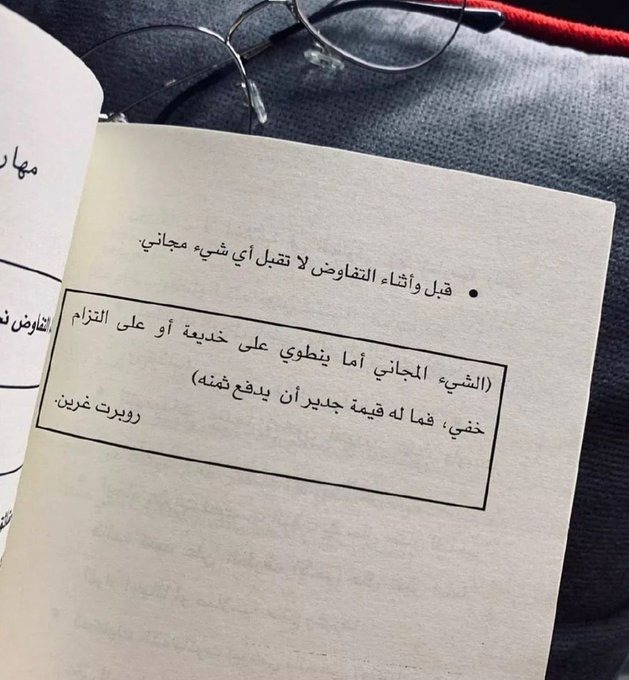 مهار
• قبل وأثناء التفاوض لا تقبل أي شيء مجاني.
التفاوض
(الشيء المجاني أما ينطوي على خديعة أو على التزام
خفي، فما له قيمة جدير أن يدفع ثمنه)
روبرت غرين.